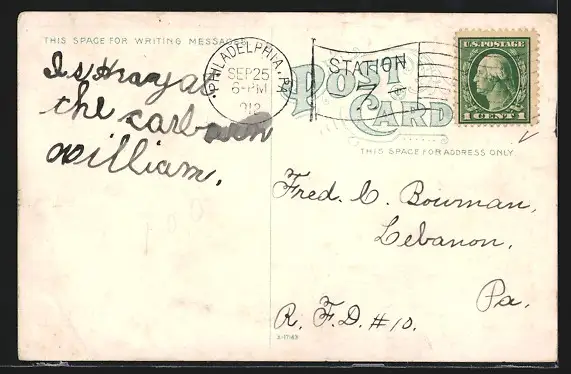 THIS SPACE FOR WRITING MESSAGES
PHILADELPHIA, PA.
SEP 25
6-PM
1912
STATION
7
POST
CARD
U.S. POSTAGE
1 CENT 1
THIS SPACE FOR ADDRESS ONLY
the
william.
Fred. C. Bowman,
Lebanon,
Pa.
R. F. D. #10.